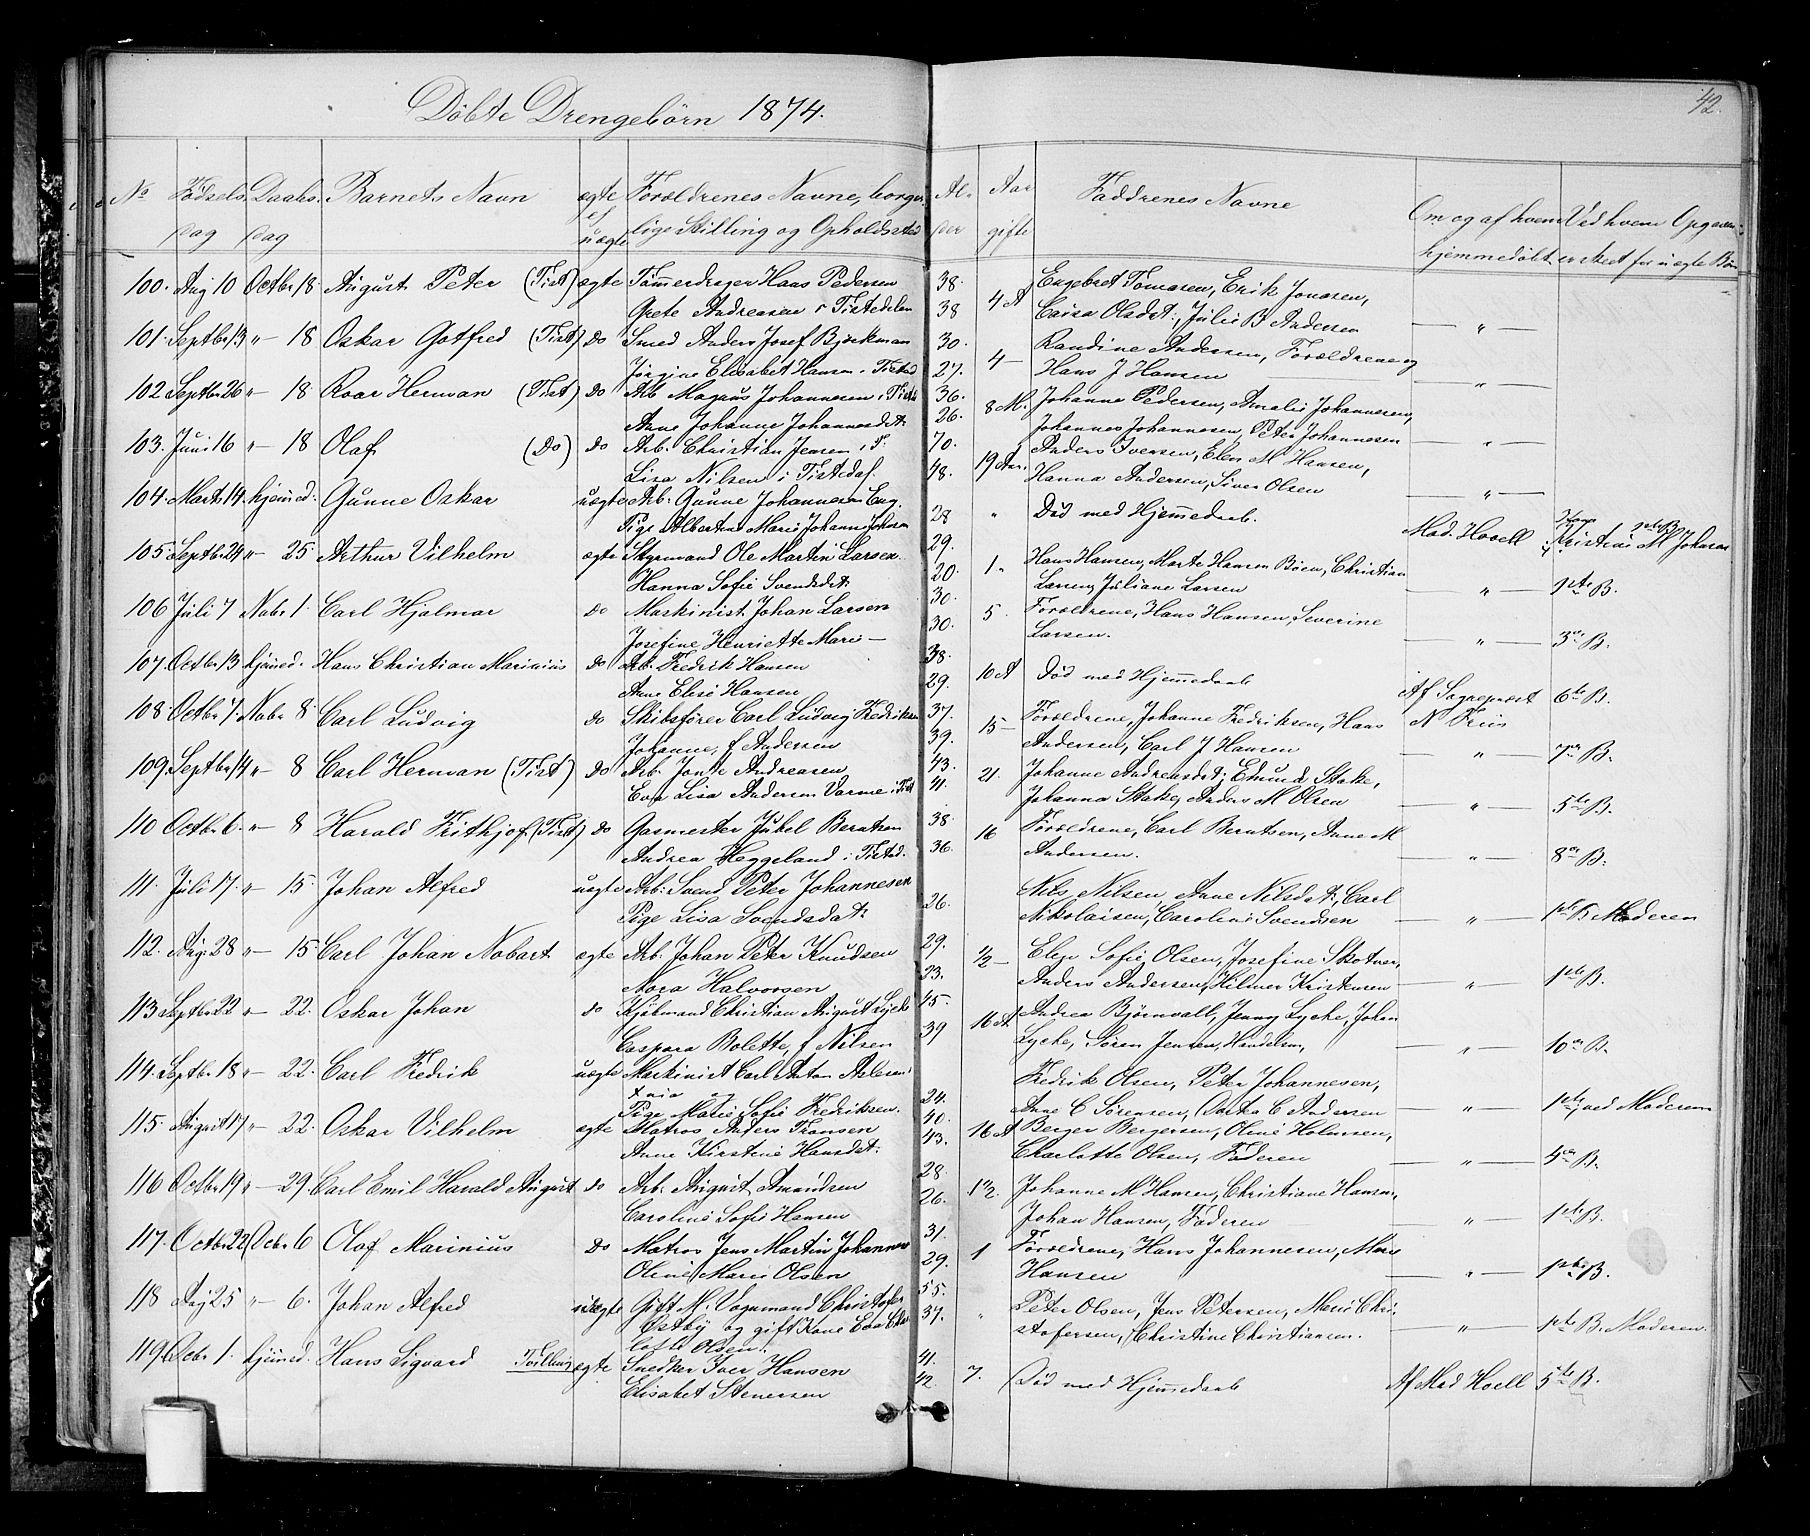 Döbte Drengebørn 1874.
42.
No Fødsels Daabs. Barnets Navn ægte Forældrenes Navne, borger Al- Aar Faddrenes Navne Om og af hvem Ved hvem Opgaven
dag dag uægte lige Stilling og Opholdssted der gifte hjemmedøbt er skeet for uægte Børn
100. Aug 10 Octbr 18. August Peter (Tist) ægte Tømmerdrager Hans Pedersen 38. 4 A Engebret Tomasen, Erik Jonasen,
Grete Andreasen i Tistedalen 38 Caisa Olsdat:, Julie B Andersen — " —
101. Septbr 13 "- 18 Oskar Gotfred (Tist) do Smed Anders Josef Bjørkman 30. 4 — Randine Andersen, Forældrene og
Jørgine Elisabet Hansen i Tisted 27. Hans J Hansen — " —
102 Septbr 26 "- 18 Roar Herman (Tist) do Arb Magnus Johannesen i Tist 36. 8 M. Johanne Pedersen, Amalie Johannesen,
Anne Johanne Johannesdat: 26. Johannes Johannesen, Peter Johannesen — " —
103. Juni 16 "- 18 Olaf (Do) do Arb. Christian Jensen i T. 70. 19 Aar. Anders Iversen, Elen M Hansen,
Lisa Nilsen i Tistedal. 48. Hanna Andersen, Siver Olsen — " —
104. Marts 14. hjemmed. Gunne Oskar uægte Arb: Gunne Johannesen Eng. 28 " Død med Hjemmedaab. Mad. Hovell
Pige Albertine Marie Johanne Johnsen 29. Kristine M Johnsen
105. Septbr 29 "- 25 Arthur Vilhelm ægte Styrmand Ole Martin Larsen. 1. Hans Hansen, Marte Hansen Bøen, Christian
Hanna Sofie Svendsdat: 20. Larsen, Juliane Larsen — " — 1ste B.
106 Juli 7 Nobr 1. Carl Hjalmar do Maskinist Johan Larsen 30. 5. Forældrene, Hans Hansen, Severine
Josefine Henriette Marie — 30. Larsen. — " — 3die B.
107. Octbr 13 hjemmed. Hans Christian Marinius do Arb. Fredrik Hansen 38. 10 A Død med Hjemmedaab
Anne Elise Hansen 29. Af Sognepræst 6te B.
108. Octbr 7. Nobr 8 Carl Ludvig do Skibsfører Carl Ludvig Fredriksen 37. 15 — Forældrene, Johanne Fredriksen, Hans N Friis
Johanne, f. Andersen 39. Andersen, Carl J Hansen — " — 7de B.
109. Septbr 14 "- 8 Carl Herman (Tist) do Arb. Jonte Andreasen 43. 21. Johanne Andreasdat; Edmund Stake,
Eva Lisa Andersen Varme i Tist 41. Johanna Stake, Anders M Olsen — " — 5te B.
110 Octbr 6. "- 8 Harald Frithjof (Tist) do Gasmester Jukel Berntsen 38. 16 Forældrene, Carl Berntsen, Anne M
Andrea Heggeland i Tisted. 36. Andersen. — " — 8de B.
111. Juli 17. "- 15. Johan Alfred uægte Arb: Svend Peter Johannesen Nils Nilsen, Anne Nilsdat; Carl
Pige Lisa Svendsdat: 26. Nikolaisen, Caroline Svendsen — " — 1ste B. Moderen
112. Aug. 28 "- 15. Carl Johan Nobart ægte Arb. Johan Peter Knudsen 29. 1/2 — Elen Sofie Olsen, Josefine Skotner,
Nora Halvorsen 23. Anders Andersen, Hilmer Kristensen — " — 1ste B.
113 Septbr 22 "- 22. Oskar Johan do Kjøbmand Christian August Lyche 45. 16 A Andrea Bjørnvall, Jenny Lyche, Johan
Caspara Bolette, f. Nilsen 39 Lyche, Søren Jensen, Handelsm, — " — 10de B.
114. Septbr 18 "- 22. Carl Fredrik uægte Maskinist Carl Anton Fredrik Olsen, Peter Johannesen,
Pige Marie Sofie Fredriksen. 24. Anne C Sørensen, C Andersen — " — 1ste, ved Moderen
115. August 17 "- 22. Oskar Vilhelm ægte Matros Anders Fransen 40. 16 A Berger Bergersen, Oline Holmsen,
Anne Kirstine Hansdat: 43. Charlotte Olsen, Faderen — " — 4de B.
116 Octbr 19 "- 29. Carl Emil Harald August do Arb. August Amundsen 28. 1 1/2. Johanne M Hansen, Christiane Hansen,
Caroline Sofie Hansen 26. Johan Hansen, Faderen — " — 1ste B.
117. Octbr 22 Decbr 6 Olaf Marinius do Matros Jens Martin Johannes 31. 1 Forældrene, Hans Johannesen, Marie
Oline Marie Olsen 29. Hansen — " — 1ste B.
118 Aug 25 "- 6. Johan Alfred uægte Gift M. Vognmand Christofer 55. " Peter Olsen, Jens Petersen, Marie Chri-
Ostby og gift Kone Eva Char 37. stofersen, Christine Christiansen. — " — 1ste B. Moderen.
lotte Olsen.
119. Decbr 1. hjemmed. Hans Sigvard Tvilling ægte Snedker Iver Hansen 41. 7. Død med Hjemmedaab Af Mad Hovell 5te B.
Elisabet Stenersen 42.